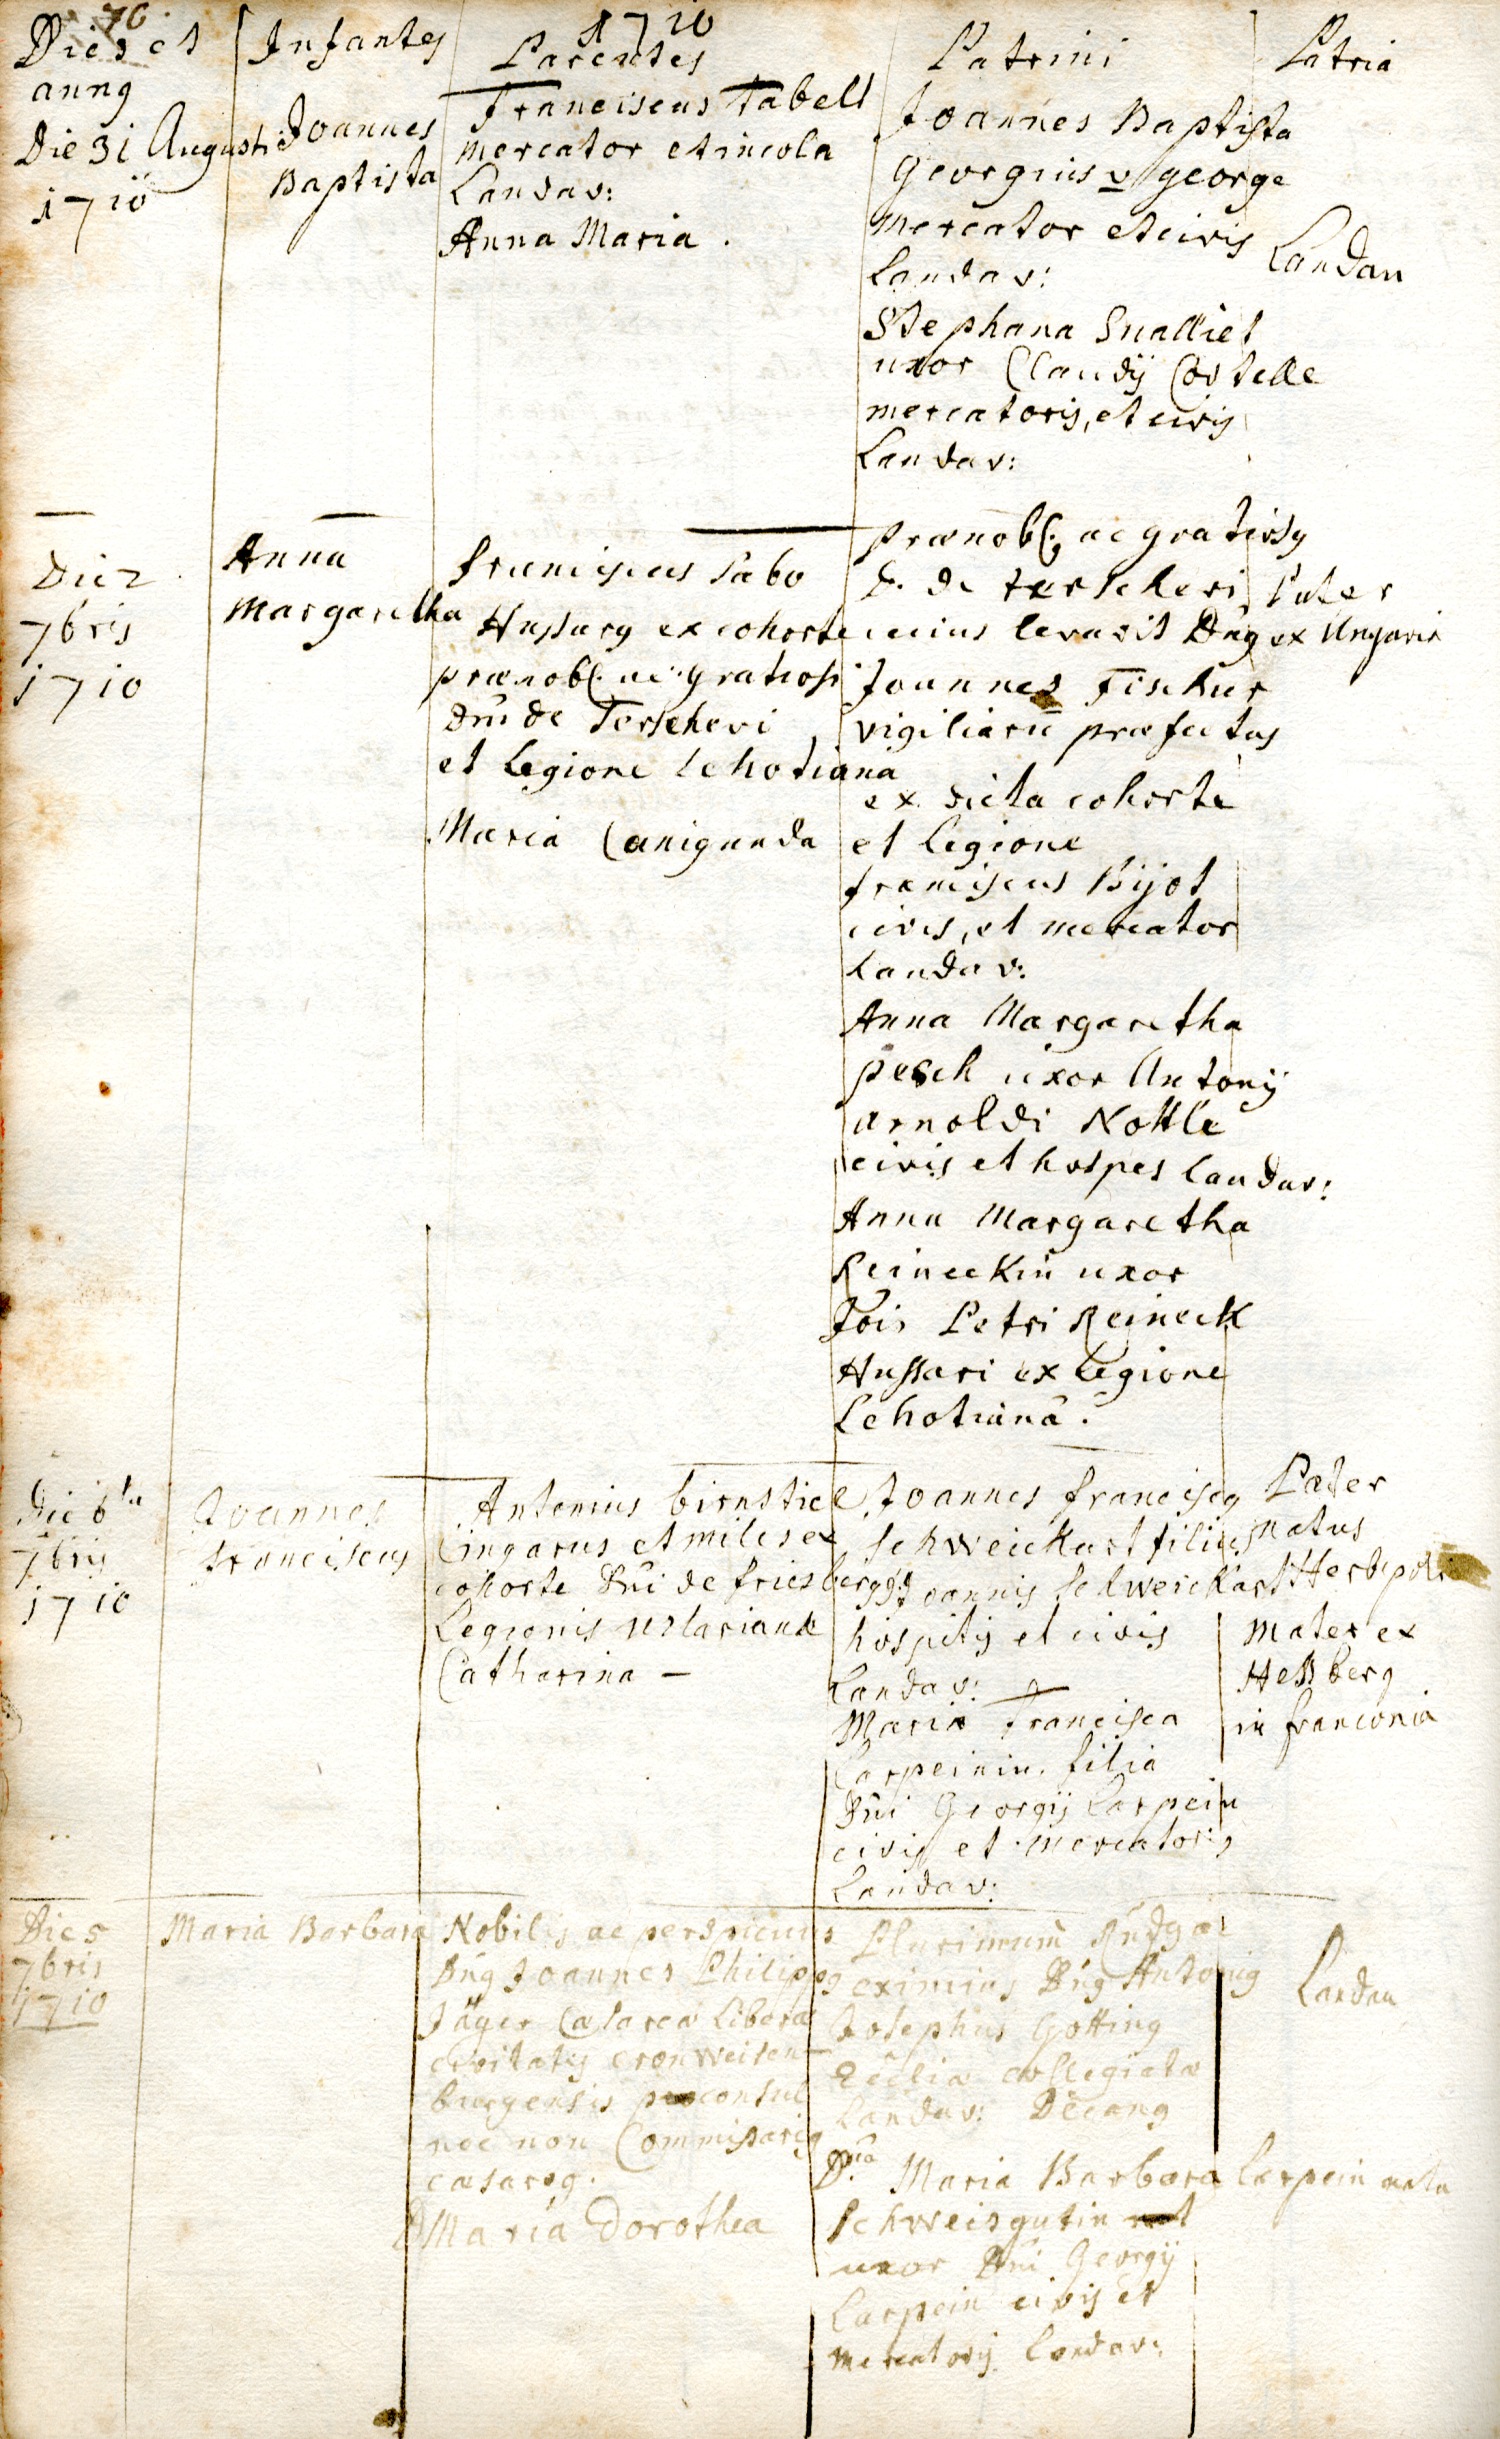 70.
1710
Dies et
annus
Infantes
Parentes
Patrini
Patria
Die 31 Augusti
1710
Joannes
Baptista
Franciscus Tabell
mercator et incola
Landav:
Anna Maria.
Joannes Baptista
Georgius v george
mercator et civis
Landav:
Stephana
uxor Claudij
mercatoris, et civis
Landav:
Landau
Die 2
7bris
1710
Anna
Margaretha
franciscus Sabo
Hussarg ex cohorte
prænobl. ac gratiosi
dni de Terschevi
et Legione lehotiana
Maria Canigunda
prænobl: ac gratiosg
D. de
cuius levavit Dng
Joannes Fischer
vigiliaru præfectus
ex dicta cohorte
et legione
franciscus Bijot
civis, et mercator
Landav:
Anna Margaretha
pesch uxor Antonij
arnoldi Nottle
civis et hospes Landav:
Anna Margaretha
Reineckin uxor
Jois Petri Reineck
Hussari ex legione
Lehotiana.
Pater
ex Ungaria
Die 6ta
7bris
1710
Joannes
franciscus
Antonius birnstiel
Cingarus et miles ex
cohorte Dni de friesberg
Legionis
Catharina –
Joannes franciscg
schweickart filius
Joannis schweickart
hospitis et civis
Landav:
Maria Francisca
Carpeinin. filia
Dni Georgij Carpein
civis et mercatoris
Landav:
Pater
natus
Herbipoli
Mater ex
Heßberg
in franconia
Die 5
7bris
1710
Maria Barbara
Nobilis ac perspicuus
Dng Joannes Philippg
Jäger Cæsareæ Liberæ
civitatis cronweisen–
burgensis proconsul
nec non Commissarig
cæsareg.
D Maria Dorothea
Plurimum Rndg ac
eximius Dng Antonig
Josephus Götting
Eccliæ collegiatæ
Landav: Decang
Dna Maria Barbara Carpein nata
schweisgutin
uxor Dni Georgij
Carpein civis et
mercatoris Landav:
Landau